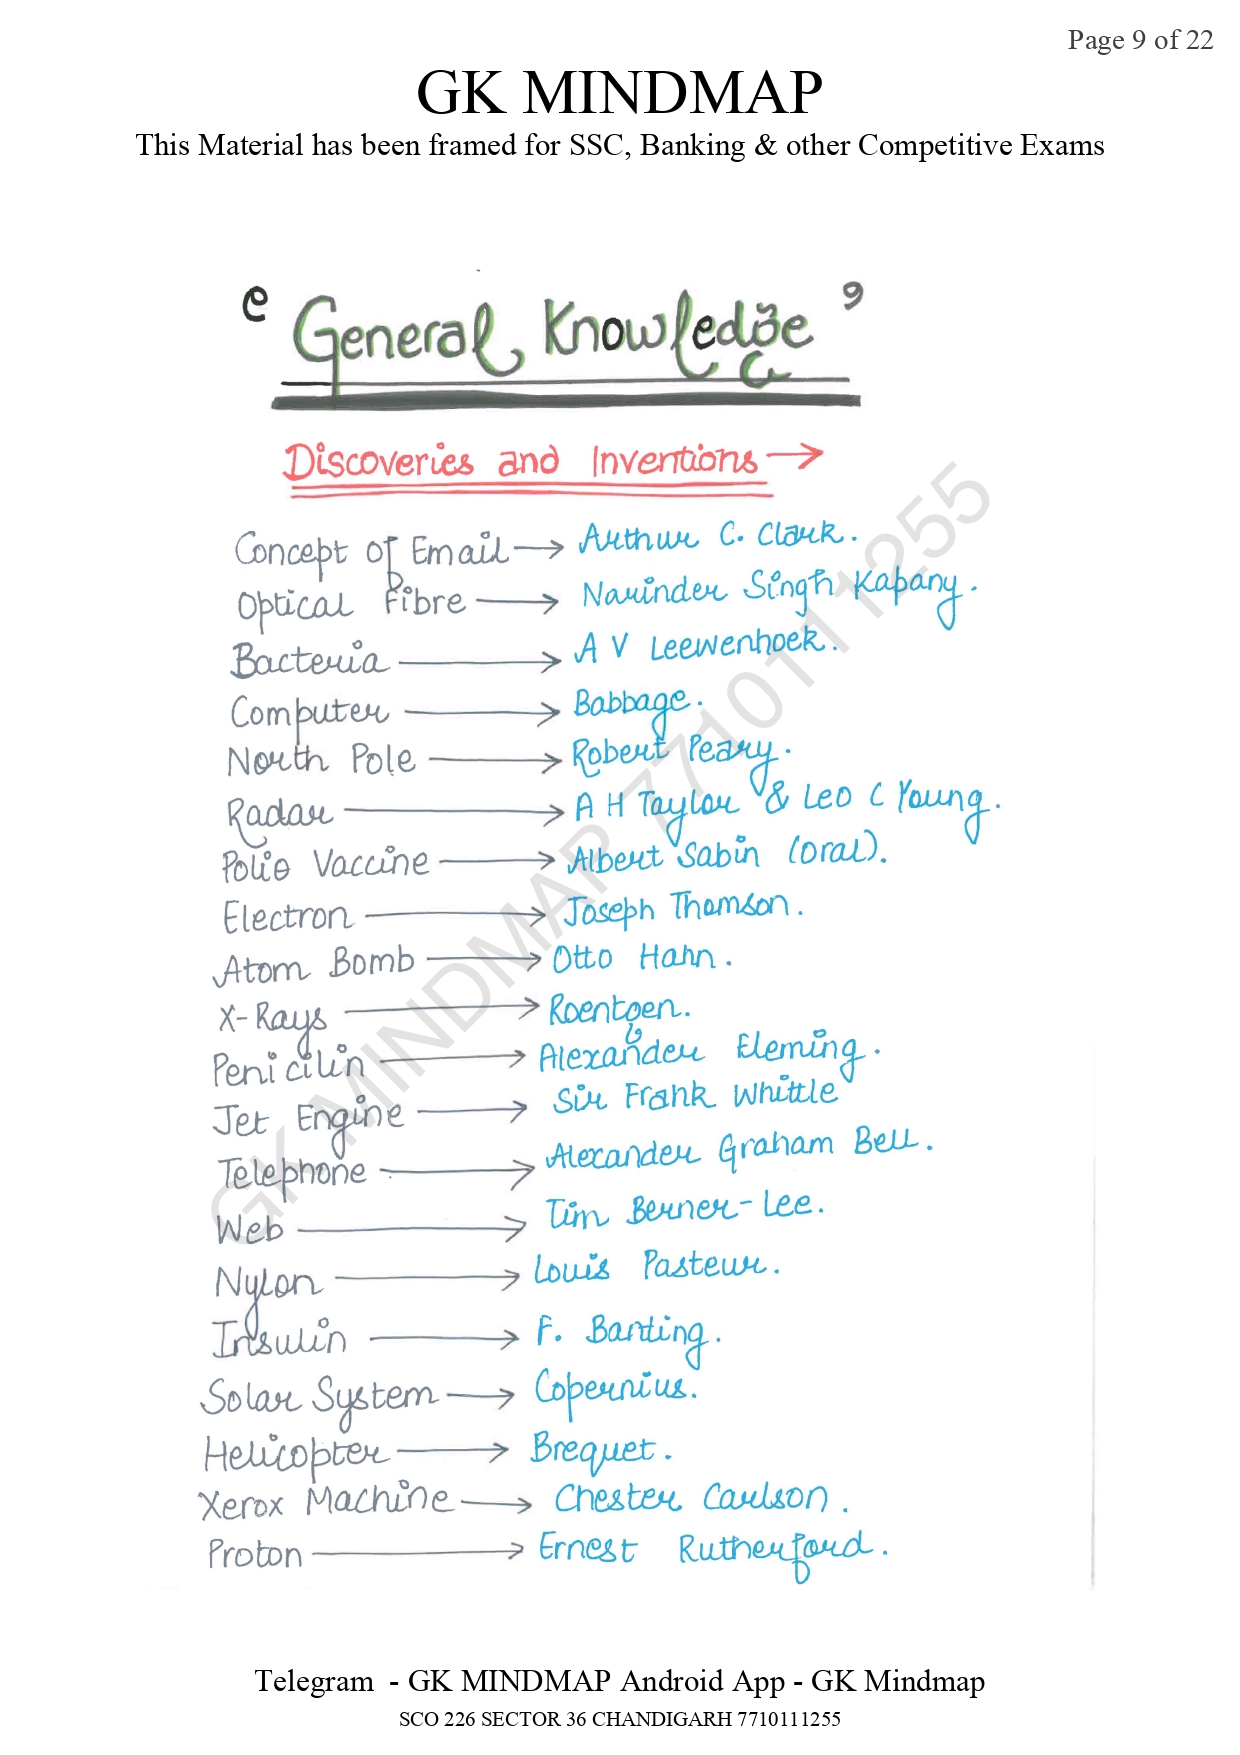 Page 9 of 22
GK MINDMAP
This Material has been framed for SSC, Banking & other Competitive Exams
General Knowledge
Discoveries and Inventions →
Concept of Email → Arthur C. Clark.
Optical Fibre → Narinder Singh Kapany.
Bacteria → A V Leewenhoek.
Computer → Babbage.
North Pole → Robert Peary.
Radar → A H Taylor & Leo C Young.
Polio Vaccine → Albert Sabin (oral).
Electron → Joseph Thomson.
Atom Bomb → Otto Hahn.
X-Rays → Roentgen.
Penicilin → Alexander Fleming.
Jet Engine → Sir Frank Whittle
Telephone → Alexander Graham Bell.
Web → Tim Berner-Lee.
Nylon → Louis Pasteur.
Insulin → F. Banting.
Solar System → Copernius.
Helicopter → Brequet.
Xerox Machine → Chester Carlson.
Proton → Ernest Rutherford.
GK MINDMAP 7710111255
Telegram - GK MINDMAP Android App - GK Mindmap
SCO 226 SECTOR 36 CHANDIGARH 7710111255